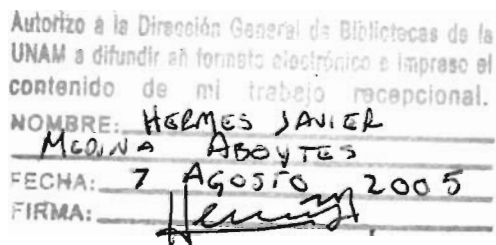 Autorizo a la Dirección General de Bibliotecas de la
UNAM a difundir en formato electrónico e impreso el
contenido de mi trabajo recepcional.
NOMBRE: HERMES JAVIER
MEDINA ABOYTES
FECHA: 7 AGOSTO 2005
FIRMA: